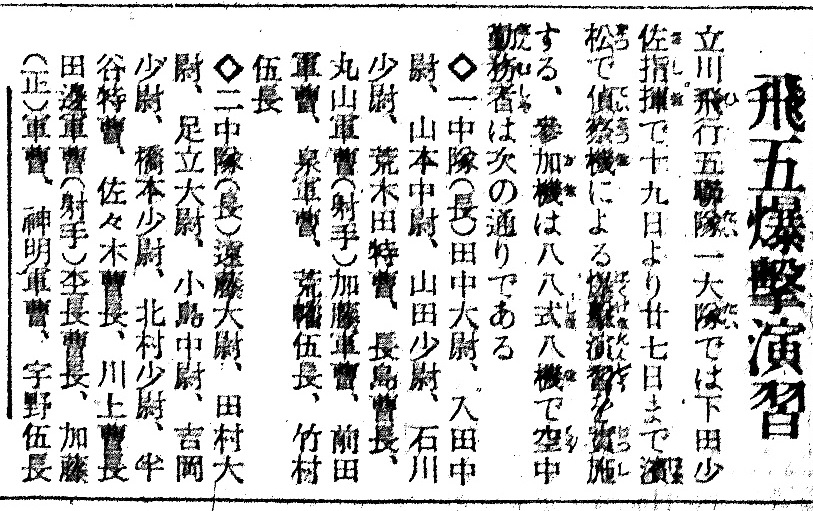 飛五爆擊演習
立川飛行五聯隊一大隊では下田少
佐指揮で十九日より廿七日まで濱
松で偵察機による爆擊演習を實施
する、參加機は八八式八機で空中
勤務者は次の通りである
◇一中隊(長)田中大尉、入田中
尉、山本中尉、山田少尉、石川
少尉、荒木田特曹、長島曹長、
丸山軍曹(射手)加藤軍曹、前田
軍曹、泉軍曹、荒幡伍長、竹村
伍長
◇二中隊(長)遠藤大尉、田村大
尉、足立大尉、小島中尉、吉岡
少尉、橋本少尉、北村少尉、半
谷特曹、佐々木曹長、川上曹長
田邊軍曹(射手)李長曹長、加藤
(正)軍曹、神明軍曹、宇野伍長